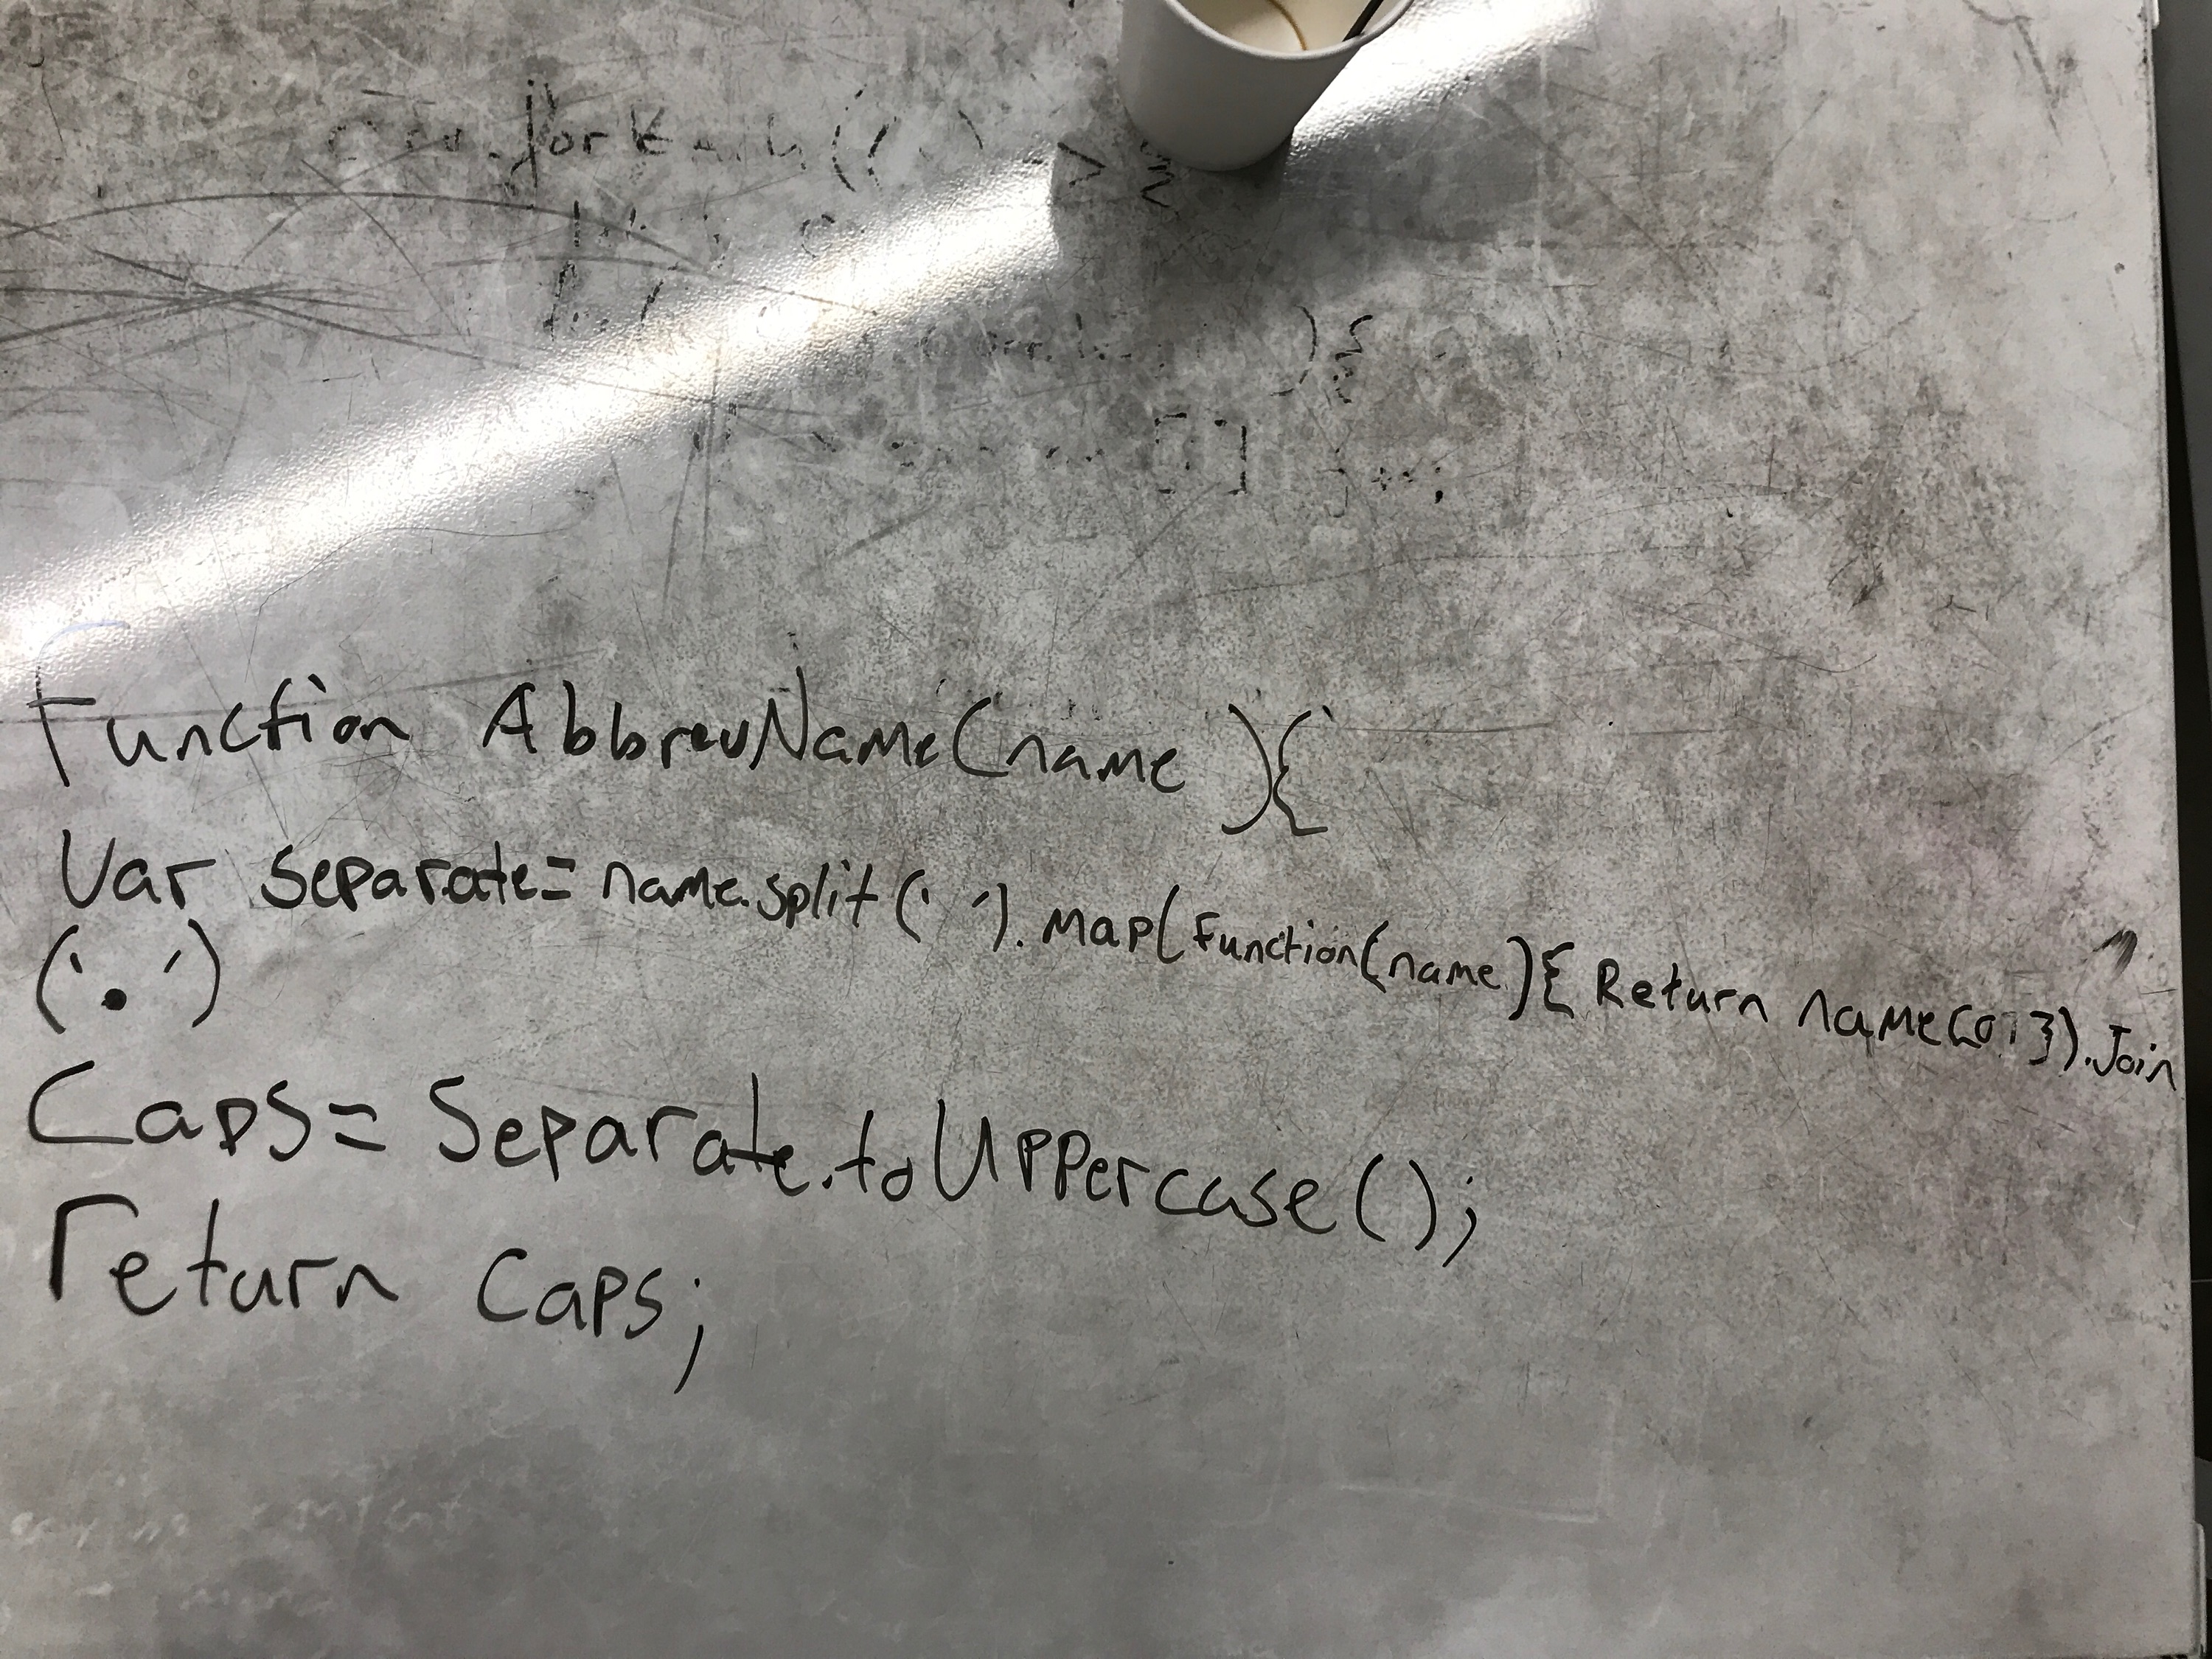 Function AbbrevName(name){
Var Separate= name.split(' '). map(Function(name){ Return name[0]}).Join
('.')
Caps= Separate.toUppercase();
return Caps;